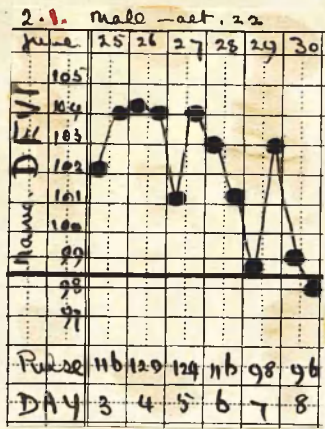 2.1. Male - aet. 22
June 25 26 27 28 29 30
105
104
103
102
101
100
99
98
97
Name.
Pulse 116 120 124 116 98 96
DAY 3 4 5 6 7 8